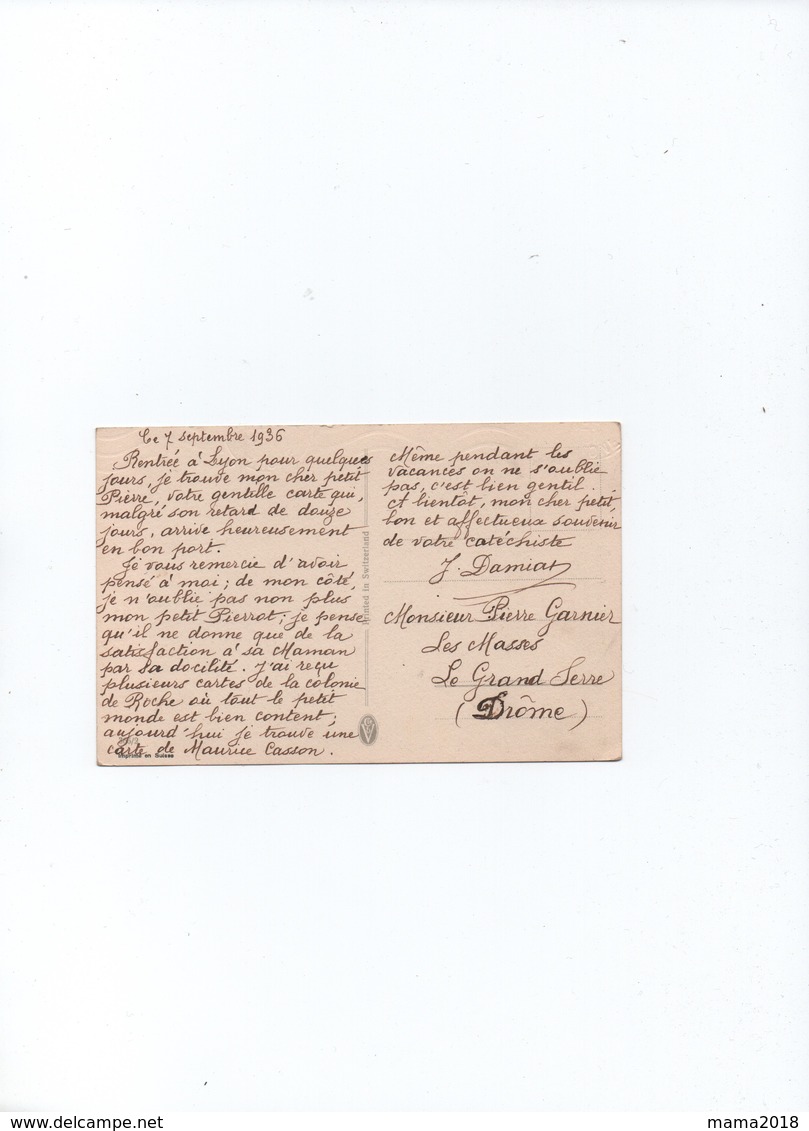 Le 7 septembre 1936
Rentrée à Lyon pour quelques
jours, je trouve mon cher petit
Pierre, votre gentille carte qui,
malgré son retard de douze
jours, arrive heureusement
en bon port.
Je vous remercie d'avoir
pensé à moi ; de mon côté,
je n'oublie pas non plus
mon petit Pierrot ; je pense
qu'il ne donne que de la
satisfaction à sa Maman
par sa docilité. J'ai reçu
plusieurs cartes de la colonie
de Roche où tout le petit
monde est bien content ;
aujourd'hui je trouve une
carte de Maurice Casson.
Imprimé en Suisse
Printed in Switzerland
Même pendant les
vacances on ne s'oublie
pas, c'est bien gentil.
A bientôt, mon cher petit,
bon et affectueux souvenir
de votre catéchiste
J. Damian
Monsieur Pierre Garnier
Les Masses
Le Grand Serre
(Drôme)
mama2018